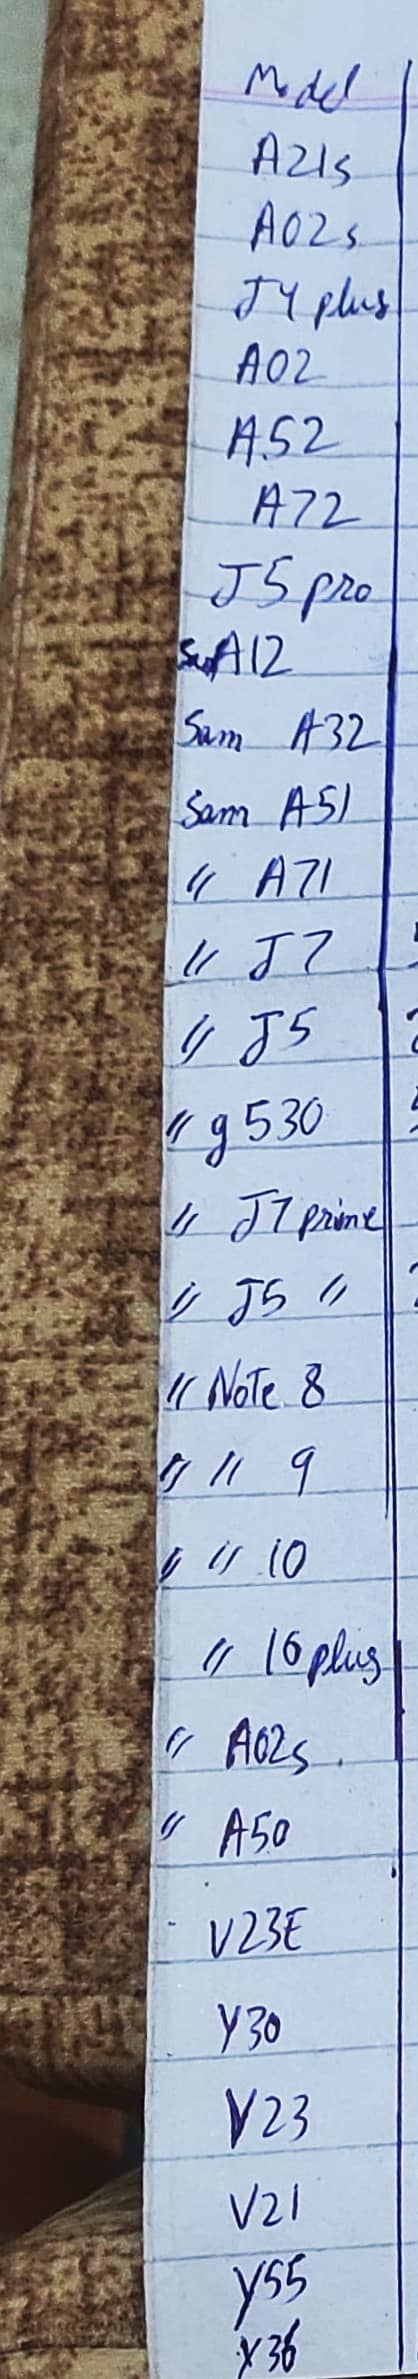 Model
A21s
A02s
J4 plus
A02
A52
A72
J5 pro
Sam A12
Sam A32
Sam A51
" A71
" J7
" J5
" g530
" J7 prime
" J5 "
" Note 8
" " 9
" " 10
" 10 plus
" A02s
" A50
V23E
Y30
V23
V21
Y55
X36